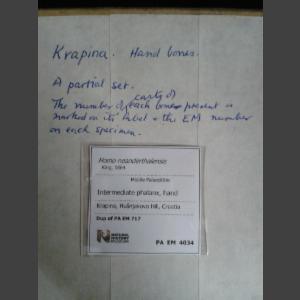 Krapina. Hand bones.
A partial set.
casts of
The number of each bone present is
marked on its label & the EM number
on each specimen.
Homo neanderthalensis
King, 1864
Middle Palaeolithic
Intermediate phalanx, hand
Krapina, Hušnjakovo Hill, Croatia
Dup of PA EM 717
NATURAL
HISTORY
MUSEUM
PA EM 4034